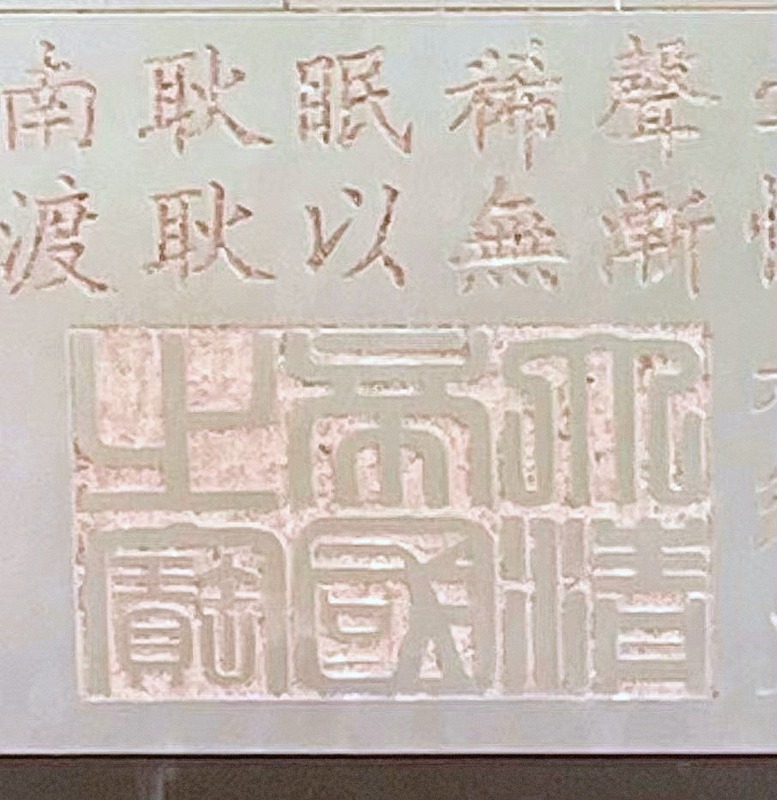 聲漸
稀無
眠以
耿耿
南渡
大清
帝國
之寶